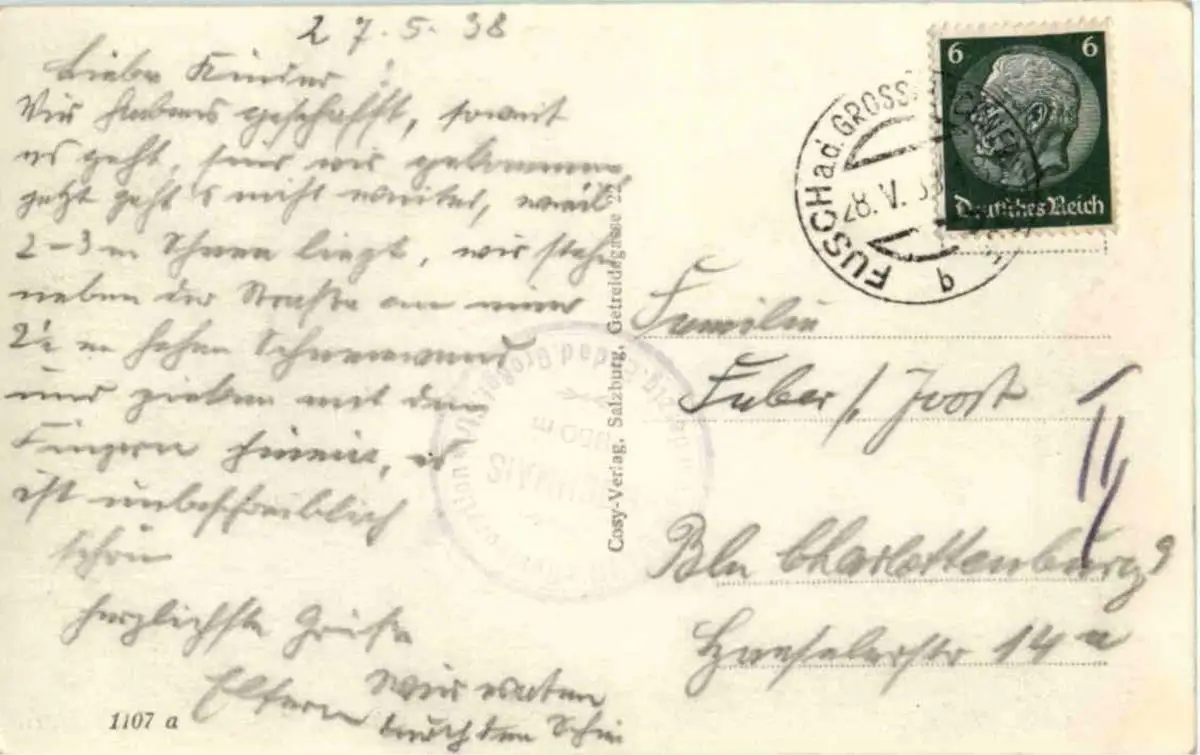 27.5.38
Liebe Kinder!
Wir habens geschafft, soweit
es geht, sind wir gekommen,
jetzt geht's nicht weiter, weil
2-3 m Schnee liegt, wir stehn
neben der Straße an einer
2½ m hohen Schneewand
und pieken mit den
Fingern hinein, es
ist unbeschreiblich
schön
herzlichste Grüße
Eltern
Wir waten
durch den Schnee
1107 a
Cosy-Verlag, Salzburg, Getreidegasse 22
6 6
Deutsches Reich
FUSCH a.d. GROSSGLOCKNER
28. V. 38
b
Familie
Faber / Joost
Bln Charlottenburg 9
Haeselerstr 14 a